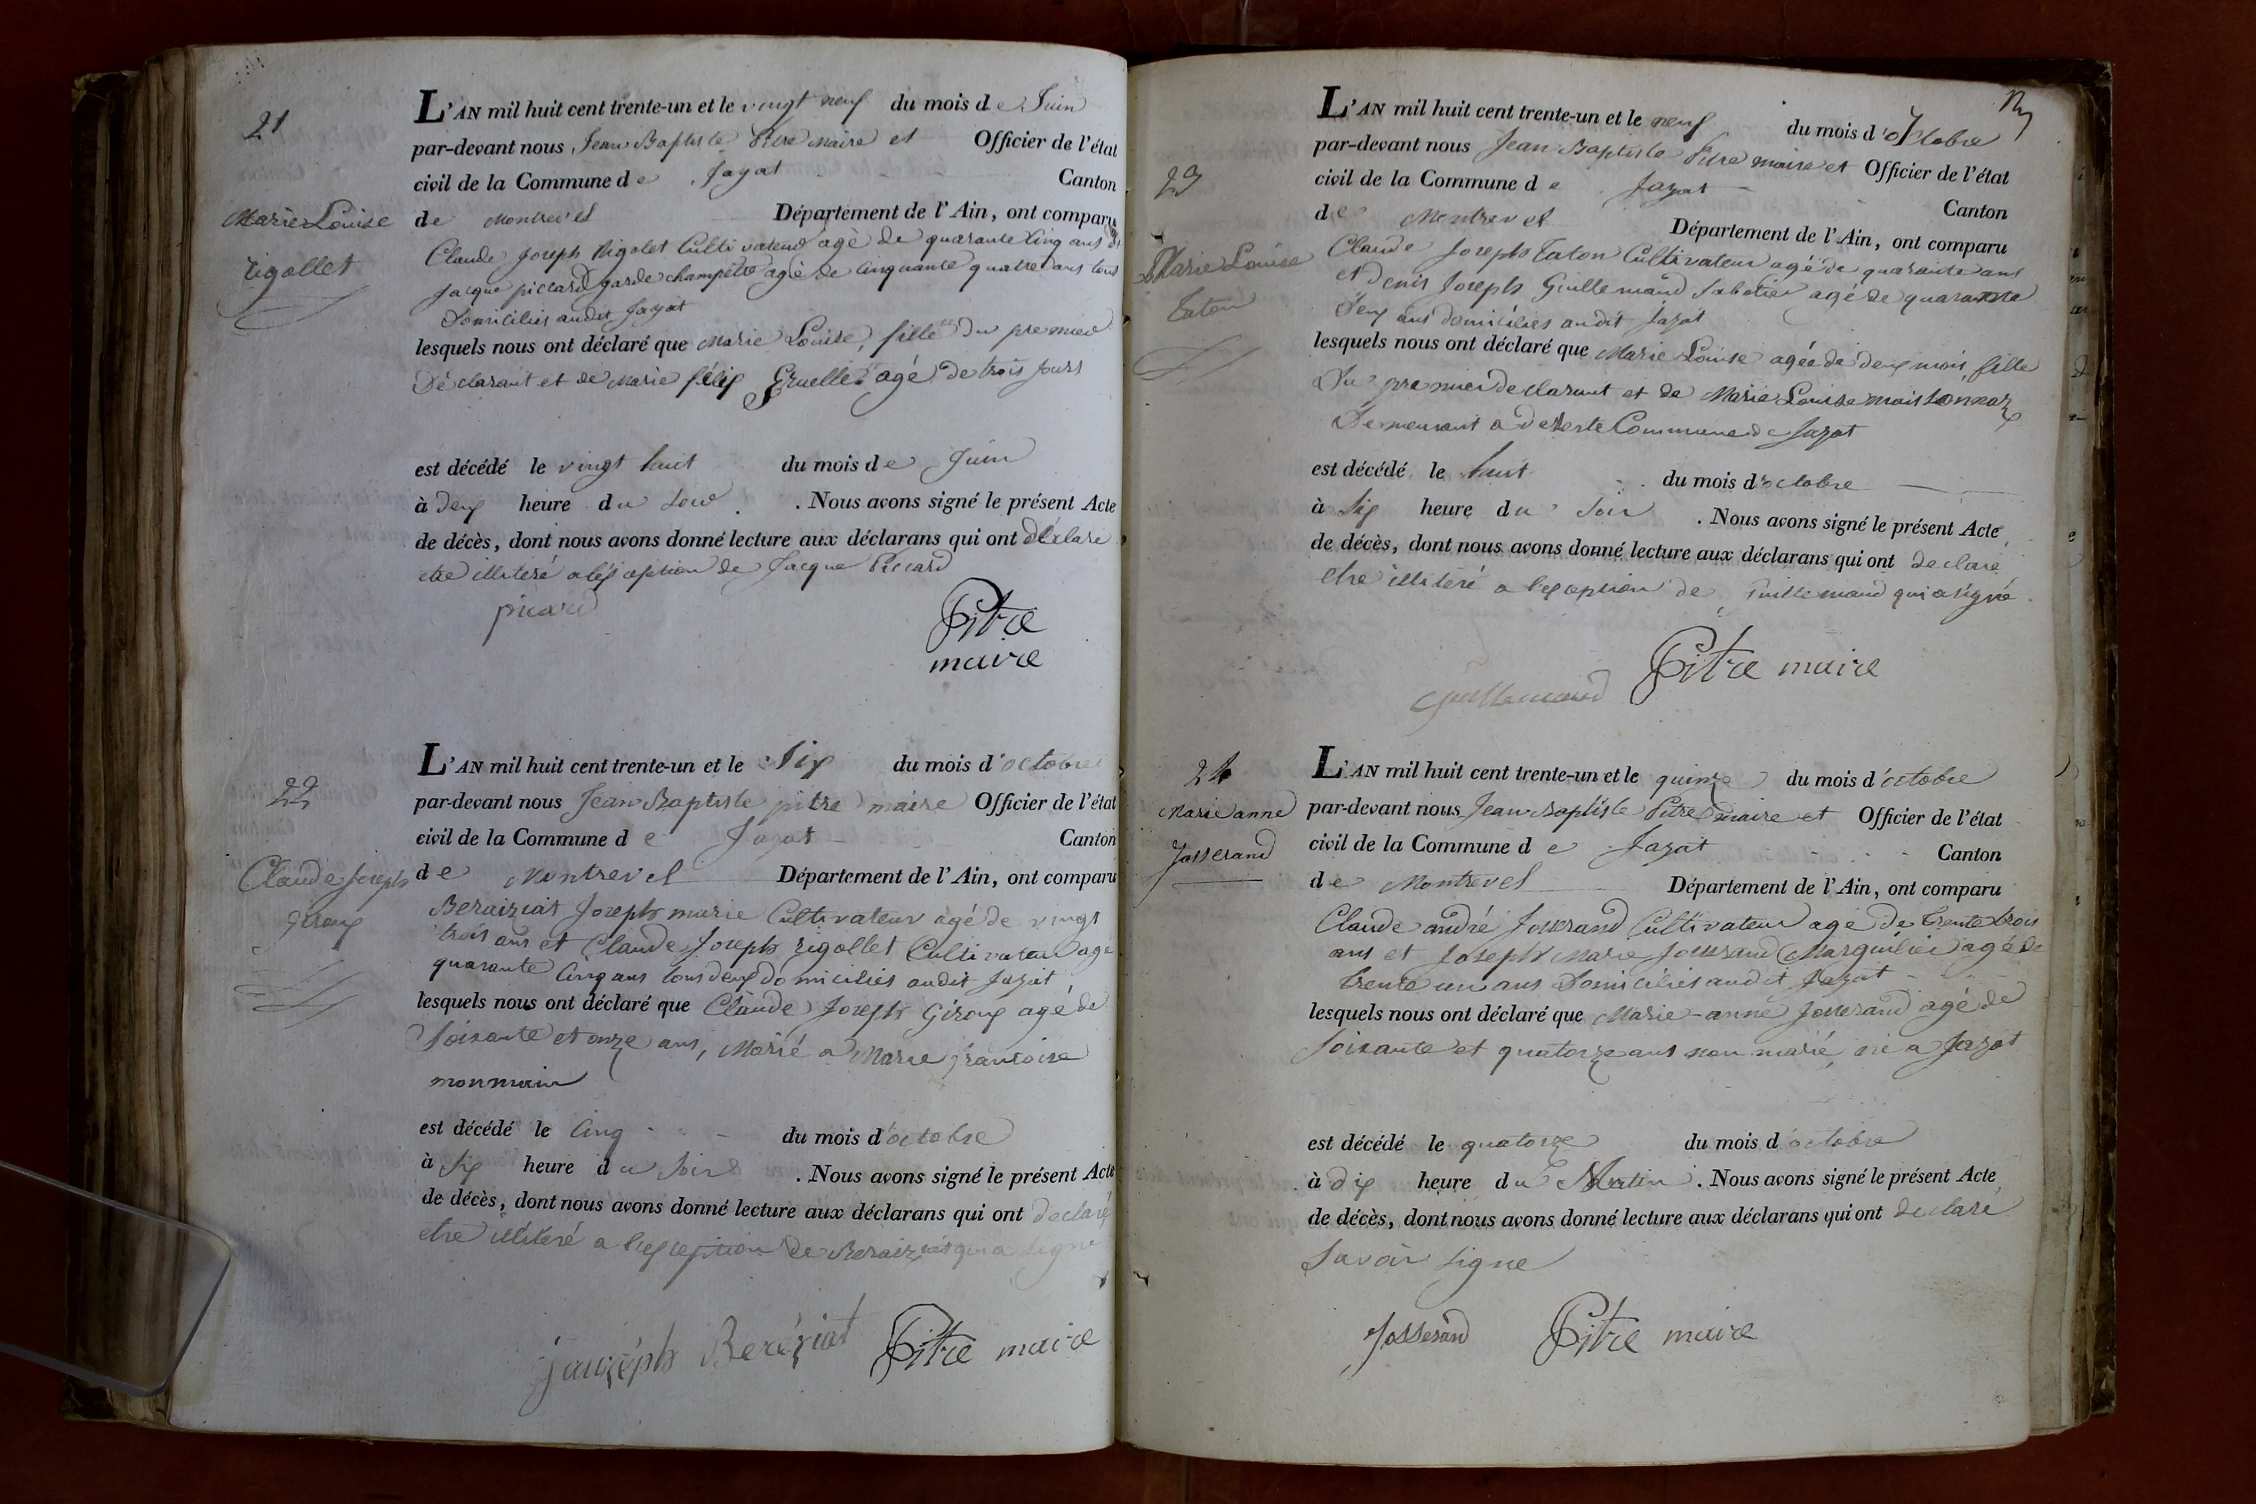 21
Marie Louise
rigollet
L'AN mil huit cent trente-un et le vingt neuf du mois de Juin
par-devant nous Jean Baptiste Pitre Maire et Officier de l'état
civil de la Commune de Jayat Canton
de Montrevel Département de l'Ain, ont comparu
Claude Joseph Rigolet Cultivateur agé de quarante Cinq ans et
Jacque piccard garde champêtre agé de Cinquante quatre ans tous
Domiciliés audit Jayat
lesquels nous ont déclaré que Marie Louise, fille du premier
Déclarant et de Marie félix Gruellet agé de trois Jours
est décédé le vingt huit du mois de Juin
à deux heure du soir. Nous avons signé le présent Acte
de décès, dont nous avons donné lecture aux déclarans qui ont déclaré
etre illiteré a léxception de Jacque Piccard
picard
Pitre
maire
22
Claude Joseph
Giroux
L'AN mil huit cent trente-un et le Six du mois d'octobre
par-devant nous Jean Baptiste pitre maire Officier de l'état
civil de la Commune de Jayat Canton
de Montrevel Département de l'Ain, ont comparu
Beraiziat Joseph marie Cultivateur agé de vingt
trois ans et Claude Joseph rigollet Cultivateur agé
quarante Cinq ans tous deux domiciliés audit Jayat
lesquels nous ont déclaré que Claude Joseph Giroux agé de
Soixante et onze ans, Marié a Marie francoise
monmain
est décédé le Cinq du mois d'octobre
à Six heure du Soir. Nous avons signé le présent Acte
de décès, dont nous avons donné lecture aux déclarans qui ont declaré
etre illiteré a l'exception de Beraiziat qui a signé
Beréziat Pitre maire
23
Marie Louise
Taton
L'AN mil huit cent trente-un et le neuf du mois d'octobre
par-devant nous Jean Baptiste Pitre maire et Officier de l'état
civil de la Commune de Jayat Canton
de Montrevel Département de l'Ain, ont comparu
Claude Joseph Taton Cultivateur agé de quarante ans
et Denis Joseph Guillemaud Sabotier agé de quarante
Deux ans domiciliés audit Jayat
lesquels nous ont déclaré que Marie Louise agée de deux mois, fille
Du premier declarant et de Marie Louise
Demeurant a Commune de Jayat
est décédé le huit du mois d'octobre
à Six heure du Soir. Nous avons signé le présent Acte
de décès, dont nous avons donné lecture aux déclarans qui ont declaré
etre illiteré a l'exception de Guillemaud qui a signé
Guillemaud Pitre maire
24
Marie anne
Josserand
L'AN mil huit cent trente-un et le quinze du mois d'octobre
par-devant nous Jean Baptiste Pitre maire et Officier de l'état
civil de la Commune de Jayat Canton
de Montrevel Département de l'Ain, ont comparu
Claude andré Josserand Cultivateur agé de trente trois
ans et Joseph Marie Josserand Marguillier agé de
trente un ans Domiciliés audit Jayat
lesquels nous ont déclaré que Marie-anne Josserand agé de
Soixante et quatorze ans non marié, né a Jayat
est décédé le quatorze du mois d'octobre
à dix heure du Matin. Nous avons signé le présent Acte
de décès, dont nous avons donné lecture aux déclarans qui ont declaré
Savoir signe
Josserand Pitre maire